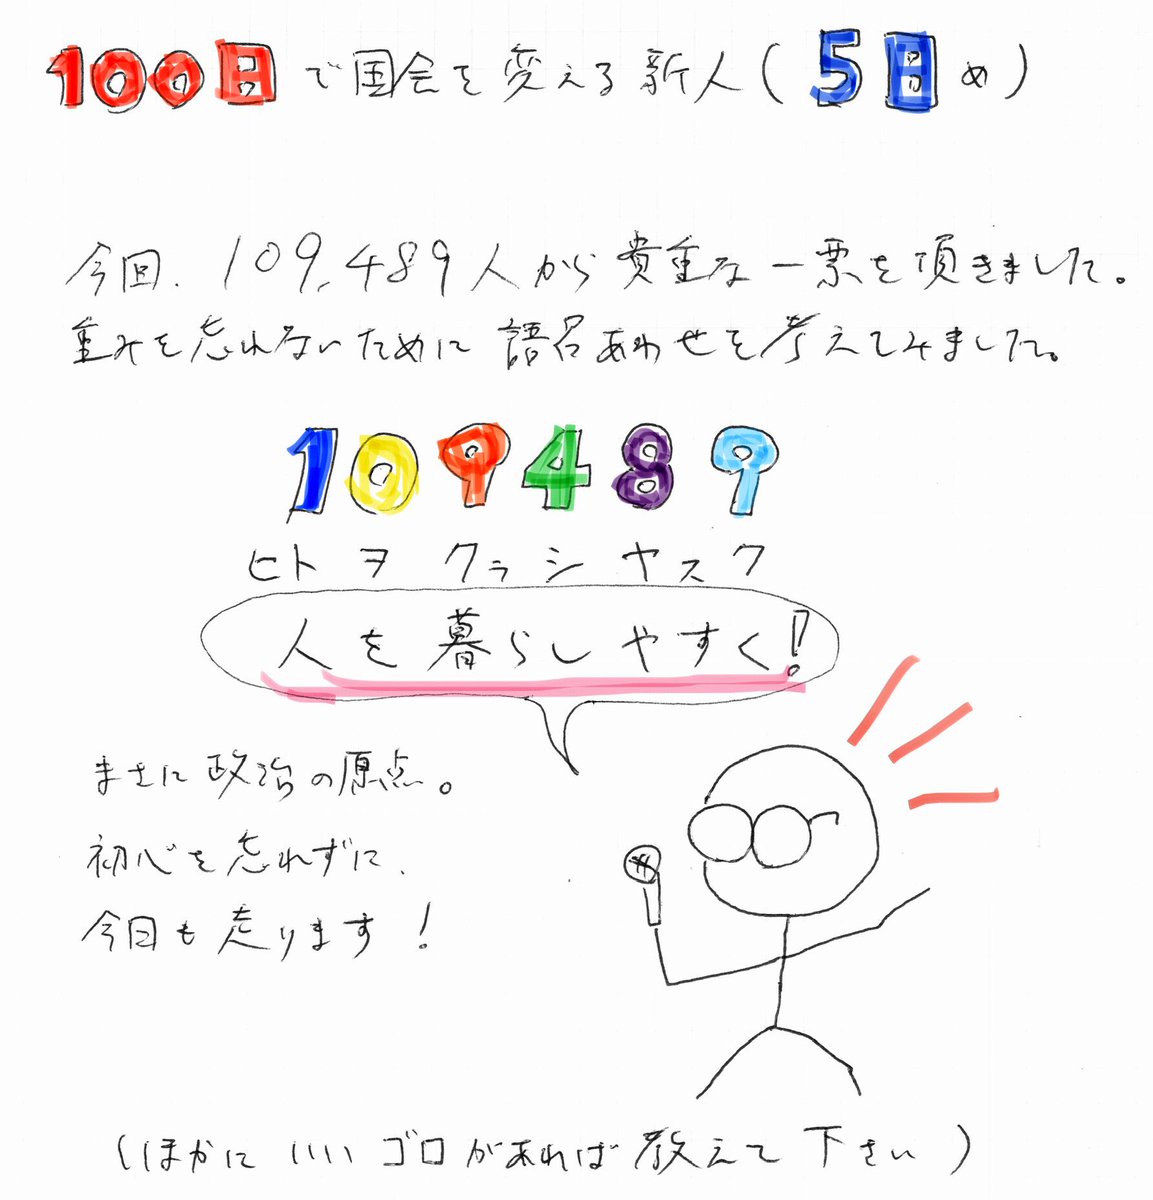 100日で国会を変える新人(5日め)
今回、109,489人から貴重な一票を頂きました。
重みを忘れないために語呂あわせを考えてみました。
109489
ヒトヲクラシヤスク
人を暮らしやすく!
まさに政治の原点。
初心を忘れずに、
今日も走ります!
(ほかにいいゴロがあれば教えて下さい)